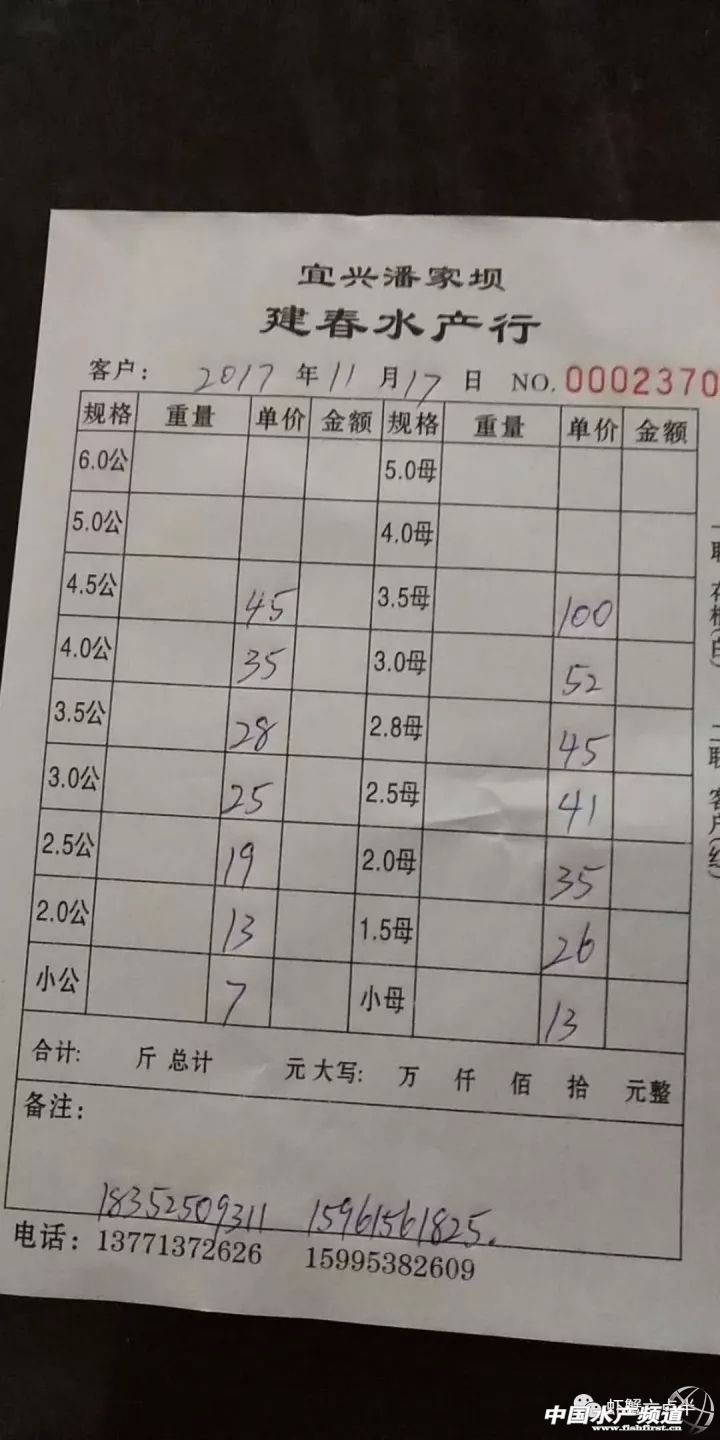 宜兴潘家坝
建春水产行
客户： 2017 年 11 月 17 日 NO. 0002370
规格 重量 单价 金额 规格 重量 单价 金额
6.0公 5.0母
5.0公 4.0母
4.5公 45 3.5母 100
4.0公 35 3.0母 52
3.5公 28 2.8母 45
3.0公 25 2.5母 41
2.5公 19 2.0母 35
2.0公 13 1.5母 26
小公 7 小母 13
合计: 斤 总计 元 大写: 万 仟 佰 拾 元整
备注:
18352509311 15961561825.
电话: 13771372626 15995382609
一联 存根(白) 二联 客户(红)
虾蟹六点半
中国水产频道
www.fishfirst.cn